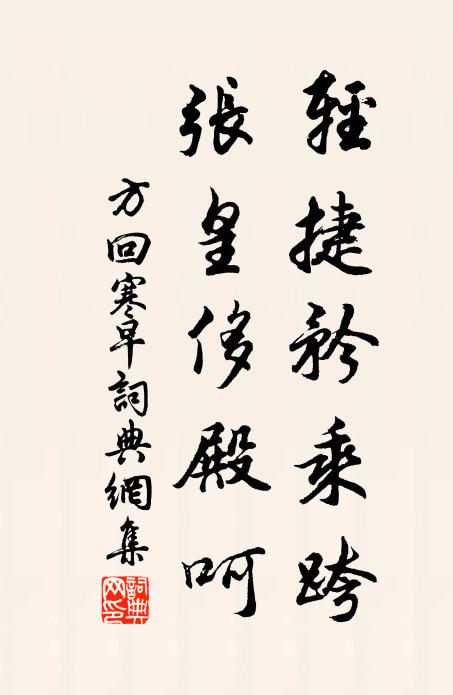 輕捷矜乘跨
張皇侈殿呵
方回寒早詞典網集
詞典
网印